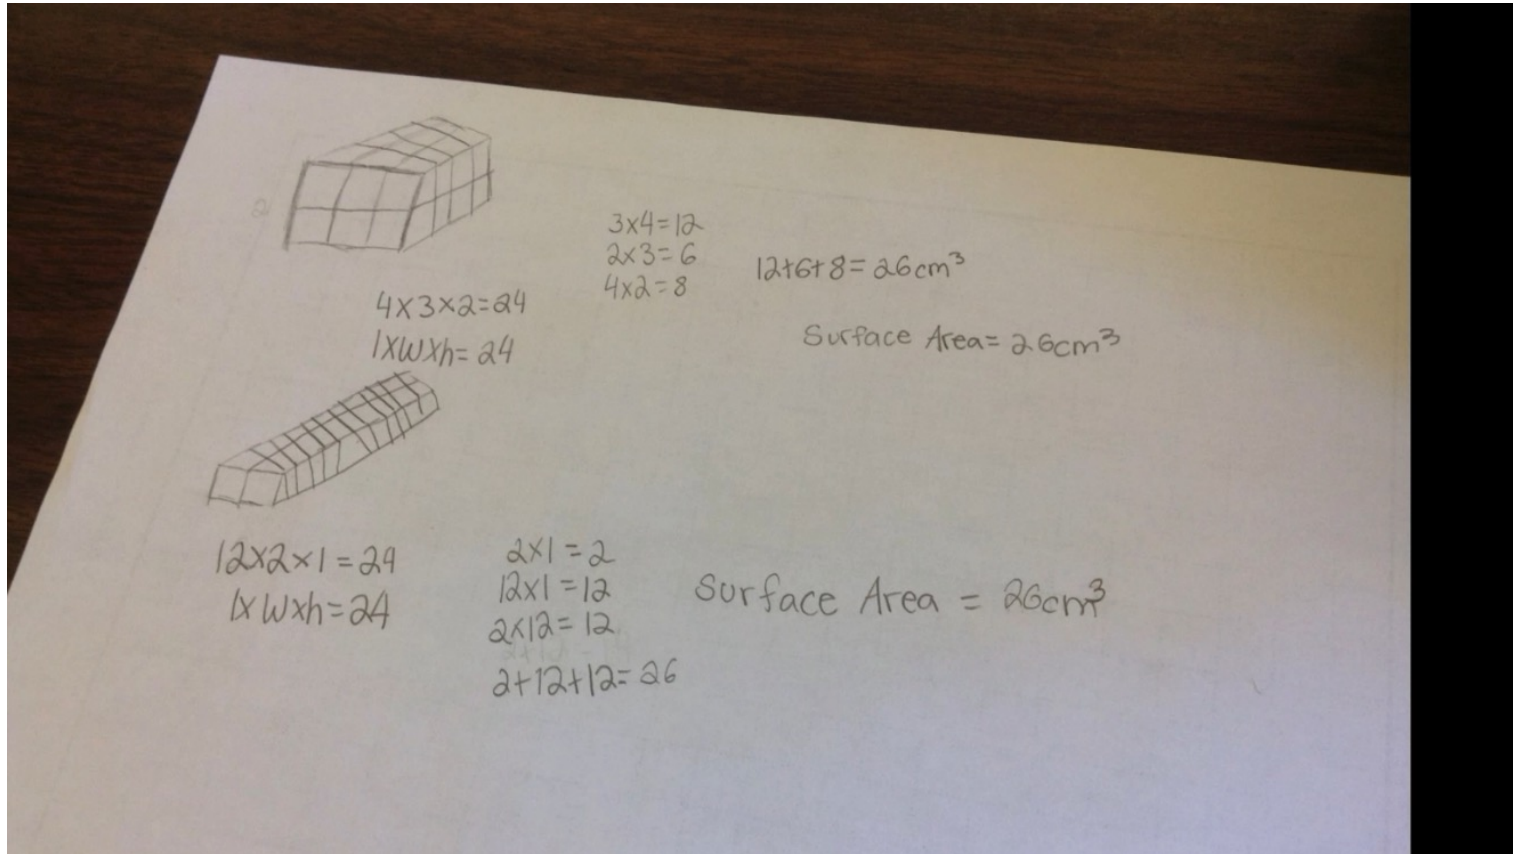 2
3x4=12
2x3=6
4x2=8
12+6+8=26cm³
4x3x2=24
lxwxh=24
Surface Area=26cm³
12x2x1=24
lxwxh=24
2x1=2
12x1=12
2x12=12
2+12+12=26
Surface Area = 26cm³